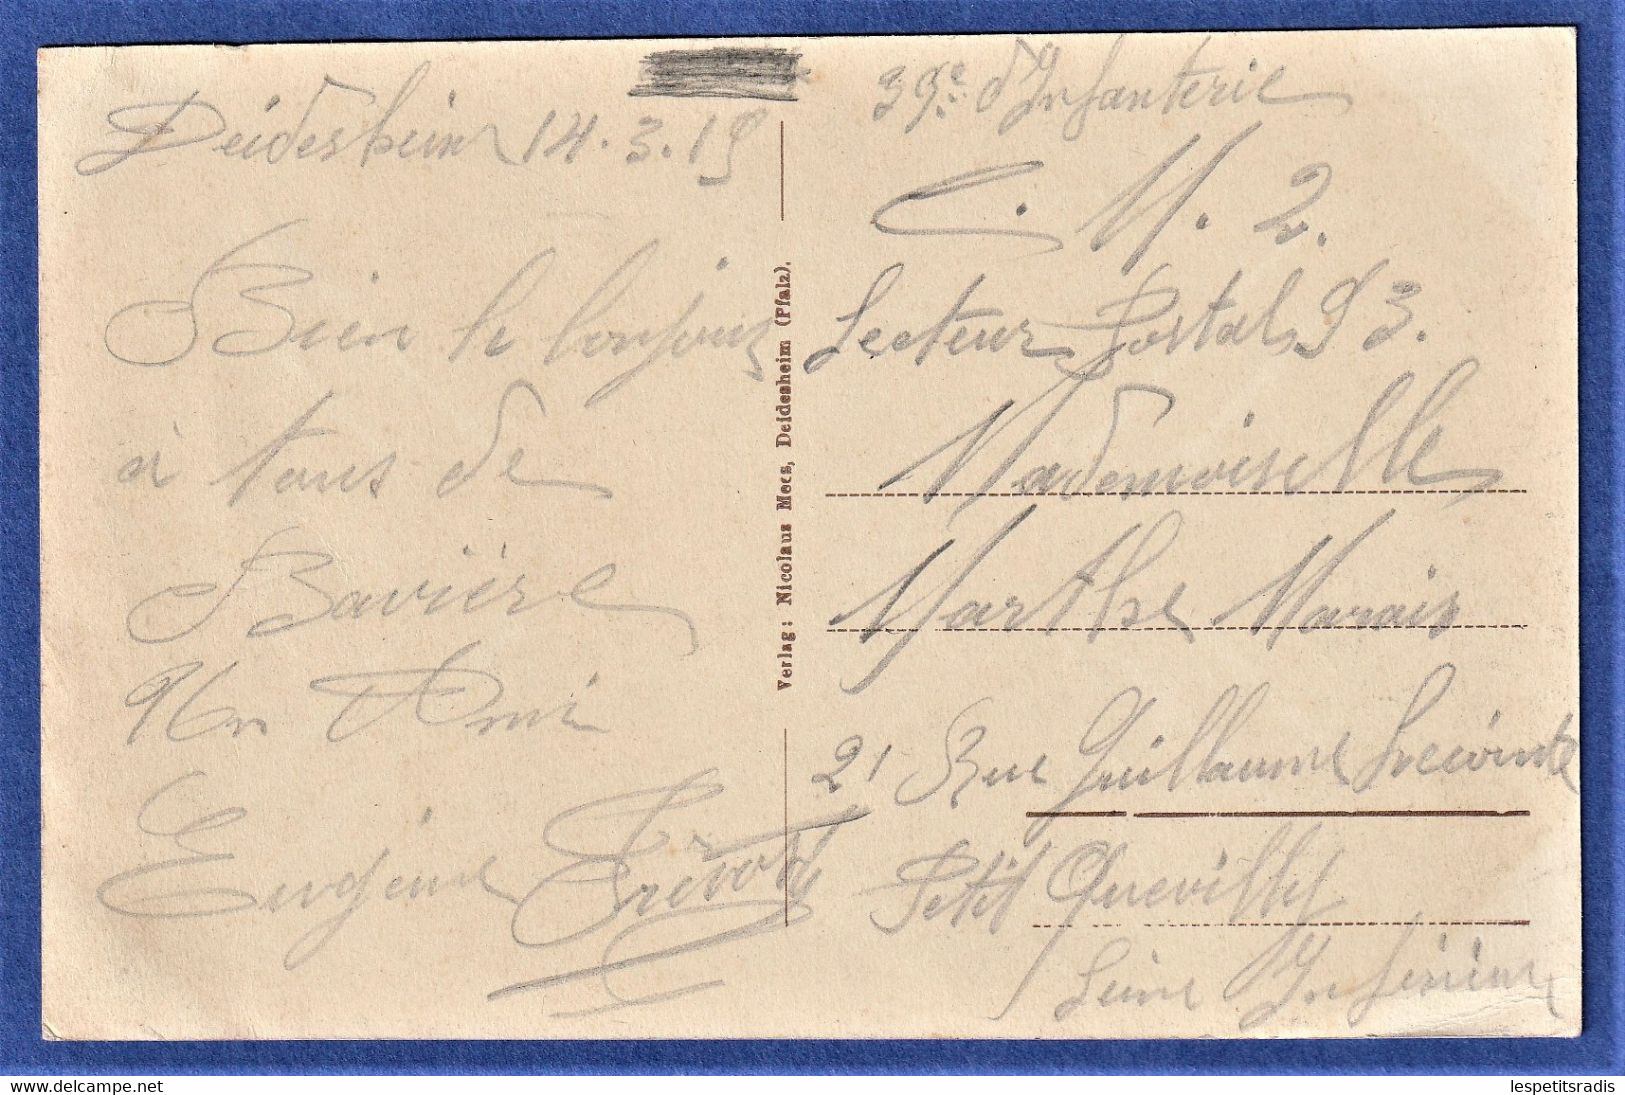 Deidesheim 14.3.19
Bien le bonjour
à tous de
Bavière
Un Ami
Eugène Prévost
Verlag: Nicolaus Mees, Deidesheim (Pfalz).
39e d'Infanterie
C. M. 2.
Secteur Postal 93.
Mademoiselle
Marthe Marais
21 Rue Guillaume Lecointe
Petit Quevilly
Seine Inférieure
lespetitsradis